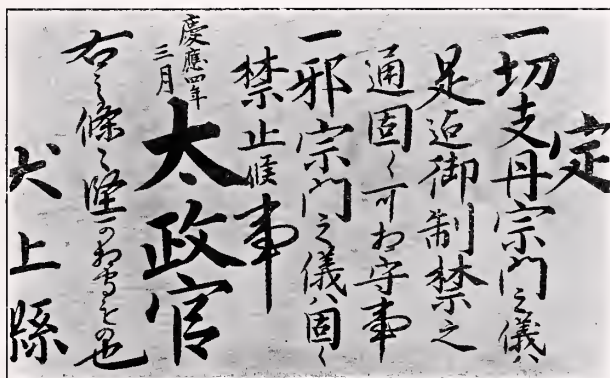 定
一切支丹宗門之儀ハ
是迄御制禁之
通固く可相守事
一邪宗門之儀ハ固く
禁止候事
慶應四年
三月
太政官
右之條々堅可相守もの也
犬上縣